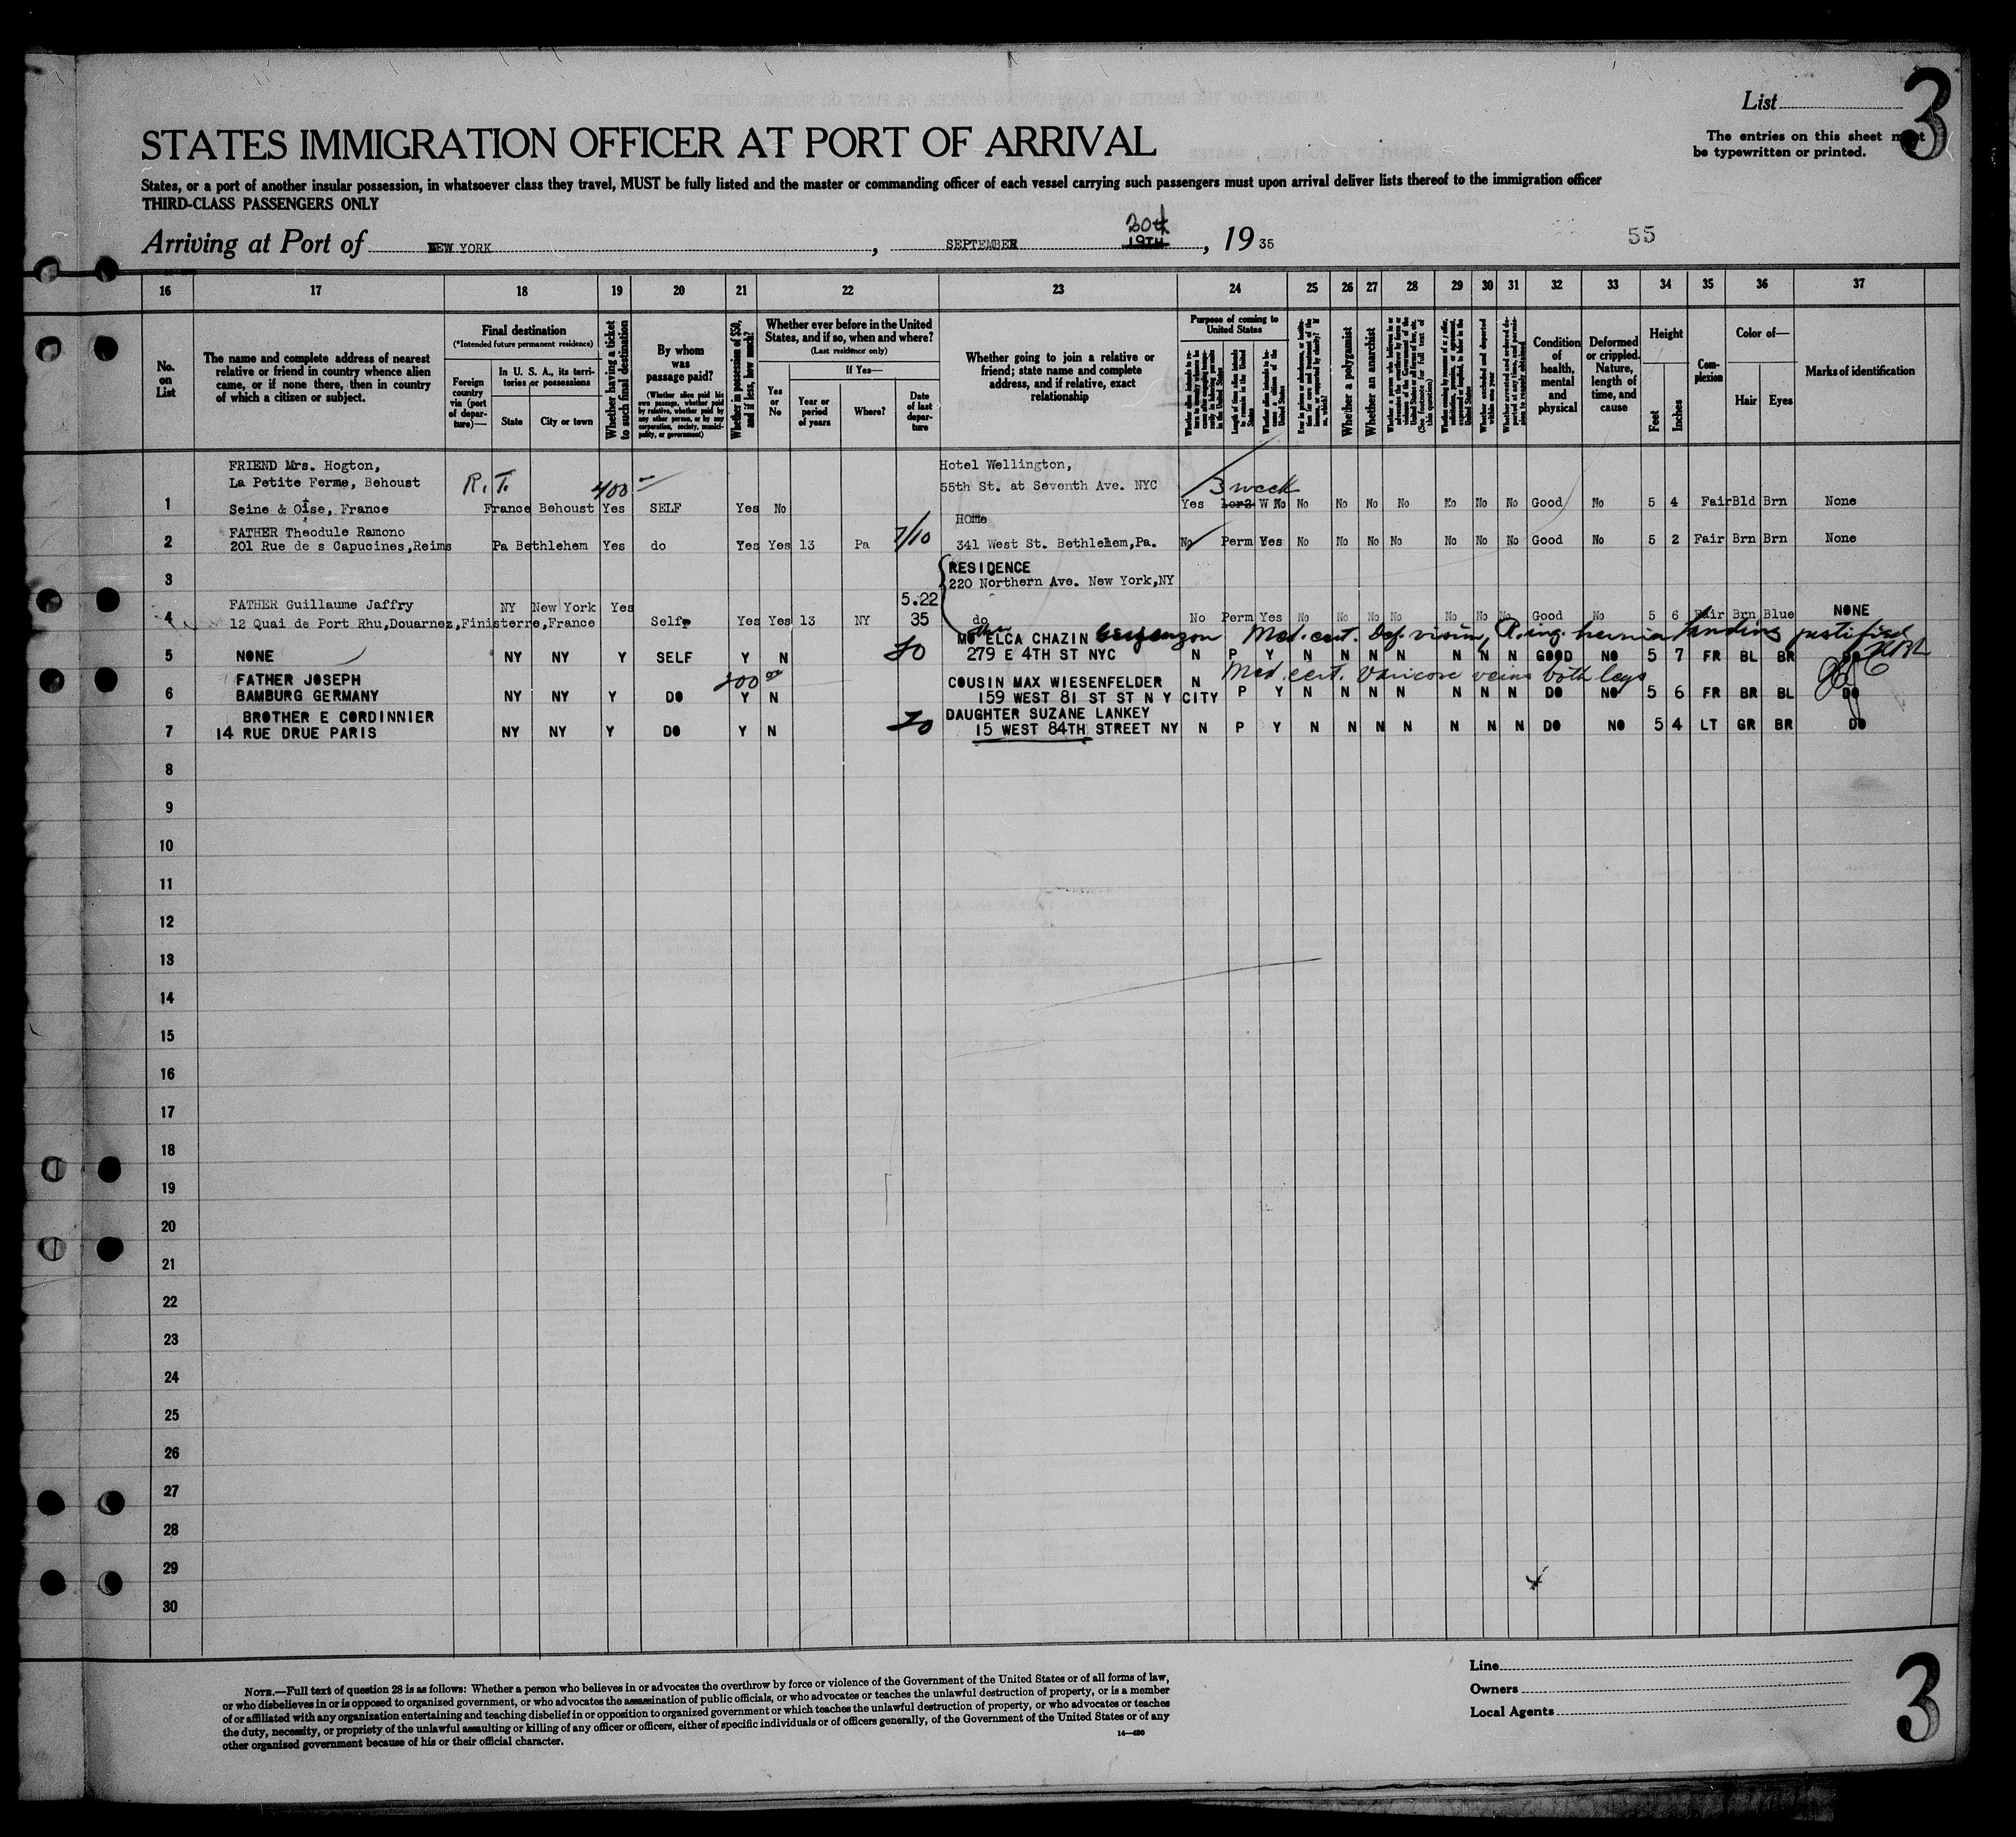 List
3
STATES IMMIGRATION OFFICER AT PORT OF ARRIVAL
The entries on this sheet must
be typewritten or printed.
States, or a port of another insular possession, in whatsoever class they travel, MUST be fully listed and the master or commanding officer of each vessel carrying such passengers must upon arrival deliver lists thereof to the immigration officer
THIRD-CLASS PASSENGERS ONLY
30th
Arriving at Port of NEW YORK, SEPTEMBER 19TH, 1935
55
16 17 18 19 20 21 22 23 24 25 26 27 28 29 30 31 32 33 34 35 36 37
No. on List
The name and complete address of nearest relative or friend in country whence alien came, or if none there, then in country of which a citizen or subject.
Final destination
(*Intended future permanent residence)
Foreign country via (port of departure)—
In U. S. A., its territories or possessions
State
City or town
Whether having a ticket to such final destination
By whom was passage paid?
(Whether alien paid his own passage, whether paid by relative, whether paid by any other person, or by any corporation, society, municipality, or government)
Whether in possession of $50, and if less, how much?
Whether ever before in the United States, and if so, when and where?
(Last residence only)
Yes or No
If Yes—
Year or period of years
Where?
Date of last departure
Whether going to join a relative or friend; state name and complete address, and if relative, exact relationship
Purpose of coming to United States
Whether a polygamist
Whether an anarchist
Condition of health, mental and physical
Deformed or crippled. Nature, length of time, and cause
Height
Feet
Inches
Complexion
Color of—
Hair
Eyes
Marks of identification
FRIEND Mrs. Hogton, Hotel Wellington,
La Petite Ferme, Behoust R.T. 400— 55th St. at Seventh Ave. NYC 3 week
1 Seine & Oise, France France Behoust Yes SELF Yes No Yes W No No No No No No No No Good No 5 4 Fair Bld Brn None
FATHER Theodule Ramono 7/10 HOme
2 201 Rue de s Capucines,Reims Pa Bethlehem Yes do Yes Yes 13 Pa 341 West St. Bethlehem,Pa. No Perm Yes No No No No No No No Good No 5 2 Fair Brn Brn None
RESIDENCE
3 220 Northern Ave. New York,NY
FATHER Guillaume Jaffry NY New York Yes 5.22
4 12 Quai de Port Rhu,Douarnez,Finisterre,France Self Yes Yes 13 NY 35 do No Perm Yes No No No No No No No Good No 5 6 Fair Brn Blue NONE
ELCA CHAZIN Med. cert. Def. vision, R. ing. hernia landing justified
5 NONE NY NY Y SELF Y N 279 E 4TH ST NYC N P Y N N N N N N N GOOD NO 5 7 FR BL BR DO
FATHER JOSEPH COUSIN MAX WIESENFELDER Med. cert. Varicose veins both legs
6 BAMBURG GERMANY NY NY Y DO Y N 159 WEST 81 ST ST N Y CITY N P Y N N N N N N N DO NO 5 6 FR BR BL DO
BROTHER E CORDINNIER DAUGHTER SUZANE LANKEY
7 14 RUE DRUE PARIS NY NY Y DO Y N 15 WEST 84TH STREET NY N P Y N N N N N N N DO NO 5 4 LT GR BR DO
8
9
10
11
12
13
14
15
16
17
18
19
20
21
22
23
24
25
26
27
28
29
30
NOTE.—Full text of question 28 is as follows: Whether a person who believes in or advocates the overthrow by force or violence of the Government of the United States or of all forms of law,
or who disbelieves in or is opposed to organized government, or who advocates the assassination of public officials, or who advocates or teaches the unlawful destruction of property, or is a member
of or affiliated with any organization entertaining and teaching disbelief in or opposition to organized government or which teaches the unlawful destruction of property, or who advocates or teaches
the duty, necessity, or propriety of the unlawful assaulting or killing of any officer or officers, either of specific individuals or of officers generally, of the Government of the United States or of any
other organized government because of his or their official character.
14—430
Line
Owners
Local Agents
3